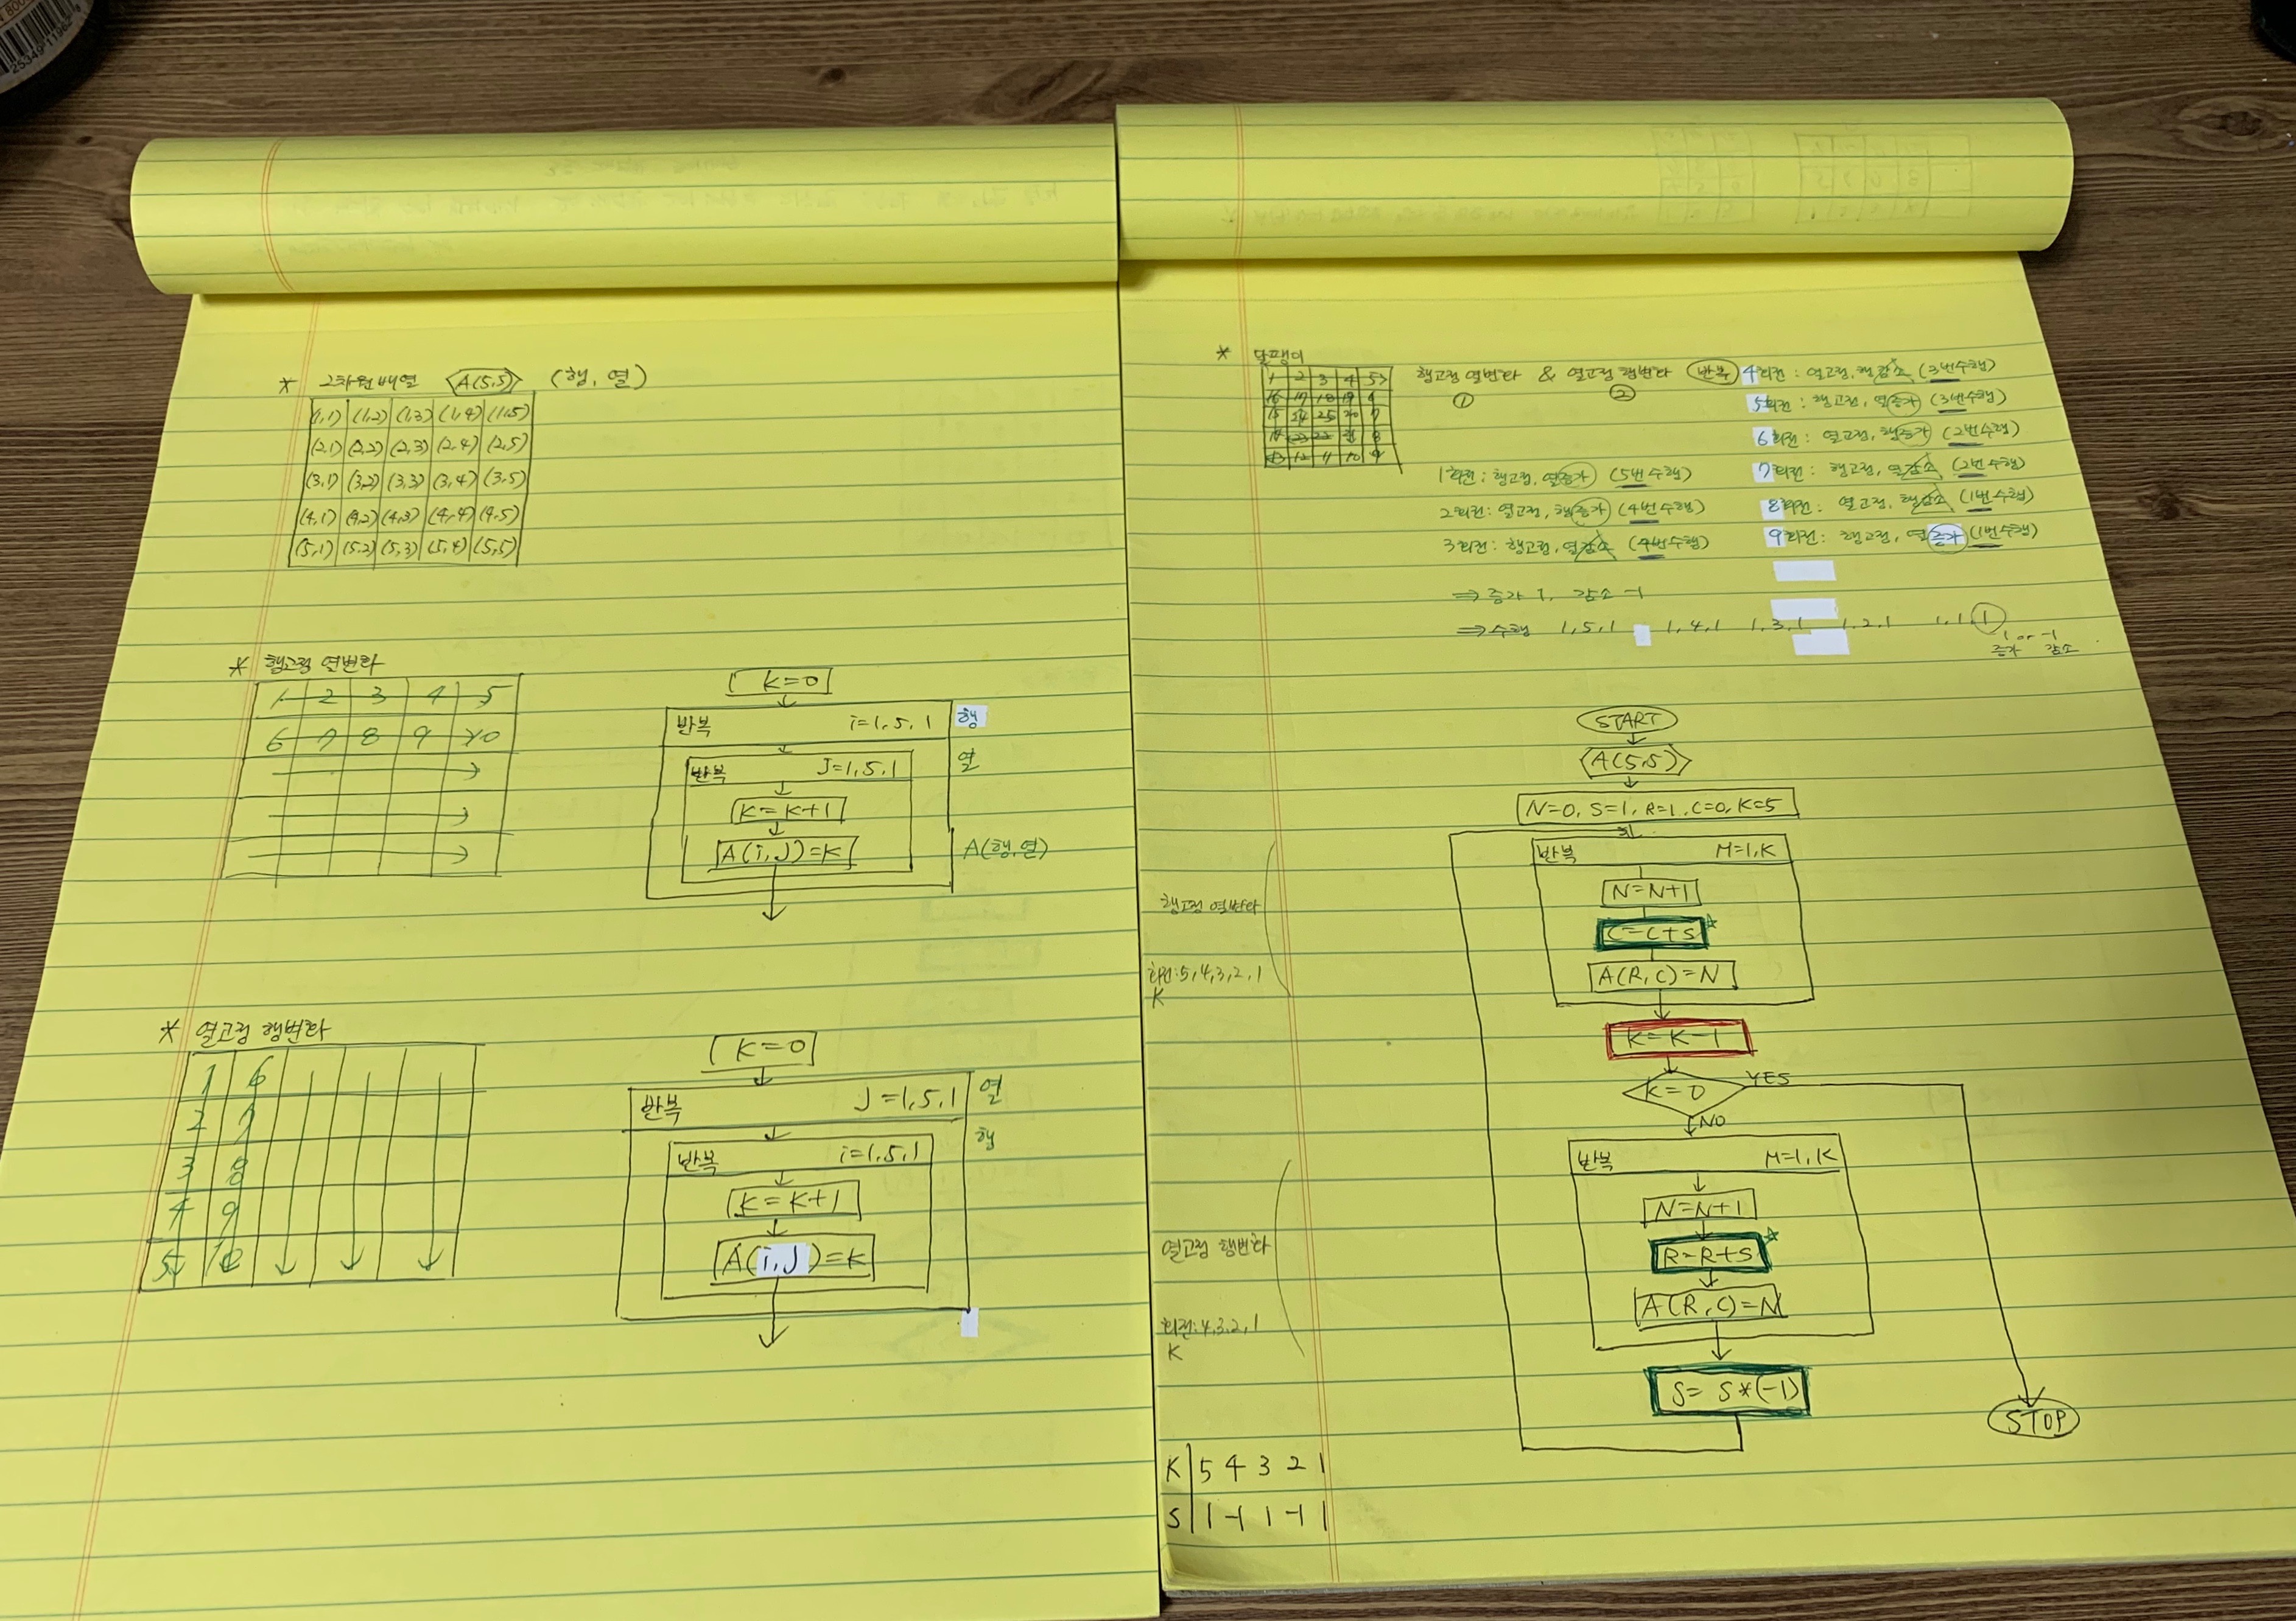 * 2차원배열 A(5,5) (행, 열)
(1,1) (1,2) (1,3) (1,4) (1,5)
(2,1) (2,2) (2,3) (2,4) (2,5)
(3,1) (3,2) (3,3) (3,4) (3,5)
(4,1) (4,2) (4,3) (4,4) (4,5)
(5,1) (5,2) (5,3) (5,4) (5,5)
* 행고정 열변화
1 2 3 4 5
6 7 8 9 10
K=0
반복 i=1,5,1 행
반복 J=1,5,1 열
K=K+1
A(i,J)=K A(행,열)
* 열고정 행변화
1 6
2 7
3 8
4 9
5 10
K=0
반복 J=1,5,1 열
반복 i=1,5,1 행
K=K+1
A(i,J)=K
* 달팽이
1 2 3 4 5
16 17 18 19 6
15 24 25 20 7
14 23 22 21 8
13 12 11 10 9
행고정 열변화 & 열고정 행변화 반복
① ②
1회전: 행고정, 열증가 (5번수행)
2회전: 열고정, 행증가 (4번수행)
3회전: 행고정, 열감소 (4번수행)
4회전: 열고정, 행감소 (3번수행)
5회전: 행고정, 열증가 (3번수행)
6회전: 열고정, 행증가 (2번수행)
7회전: 행고정, 열감소 (2번수행)
8회전: 열고정, 행감소 (1번수행)
9회전: 행고정, 열증가 (1번수행)
⇒ 증가 1, 감소 -1
⇒ 수행 1,5,1 1,4,1 1,3,1 1,2,1 1,1,1
1 or -1
증가 감소
START
A(5,5)
N=0, S=1, R=1, C=0, K=5
반복 M=1,K
N=N+1
행고정 열변화
C=C+S
회전:5,4,3,2,1
K
A(R,C)=N
K=K-1
K=0 YES
NO
반복 M=1,K
N=N+1
열고정 행변화
R=R+S
A(R,C)=N
회전:4,3,2,1
K
S=S*(-1)
STOP
K 5 4 3 2 1
S 1 -1 1 -1 1